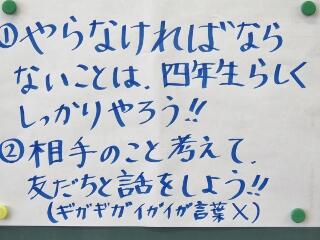 ①やらなければなら
ないことは、四年生らしく
しっかりやろう!!
②相手のこと考えて、
友だちと話をしよう!!
(ギガギガイガイガ言葉×)